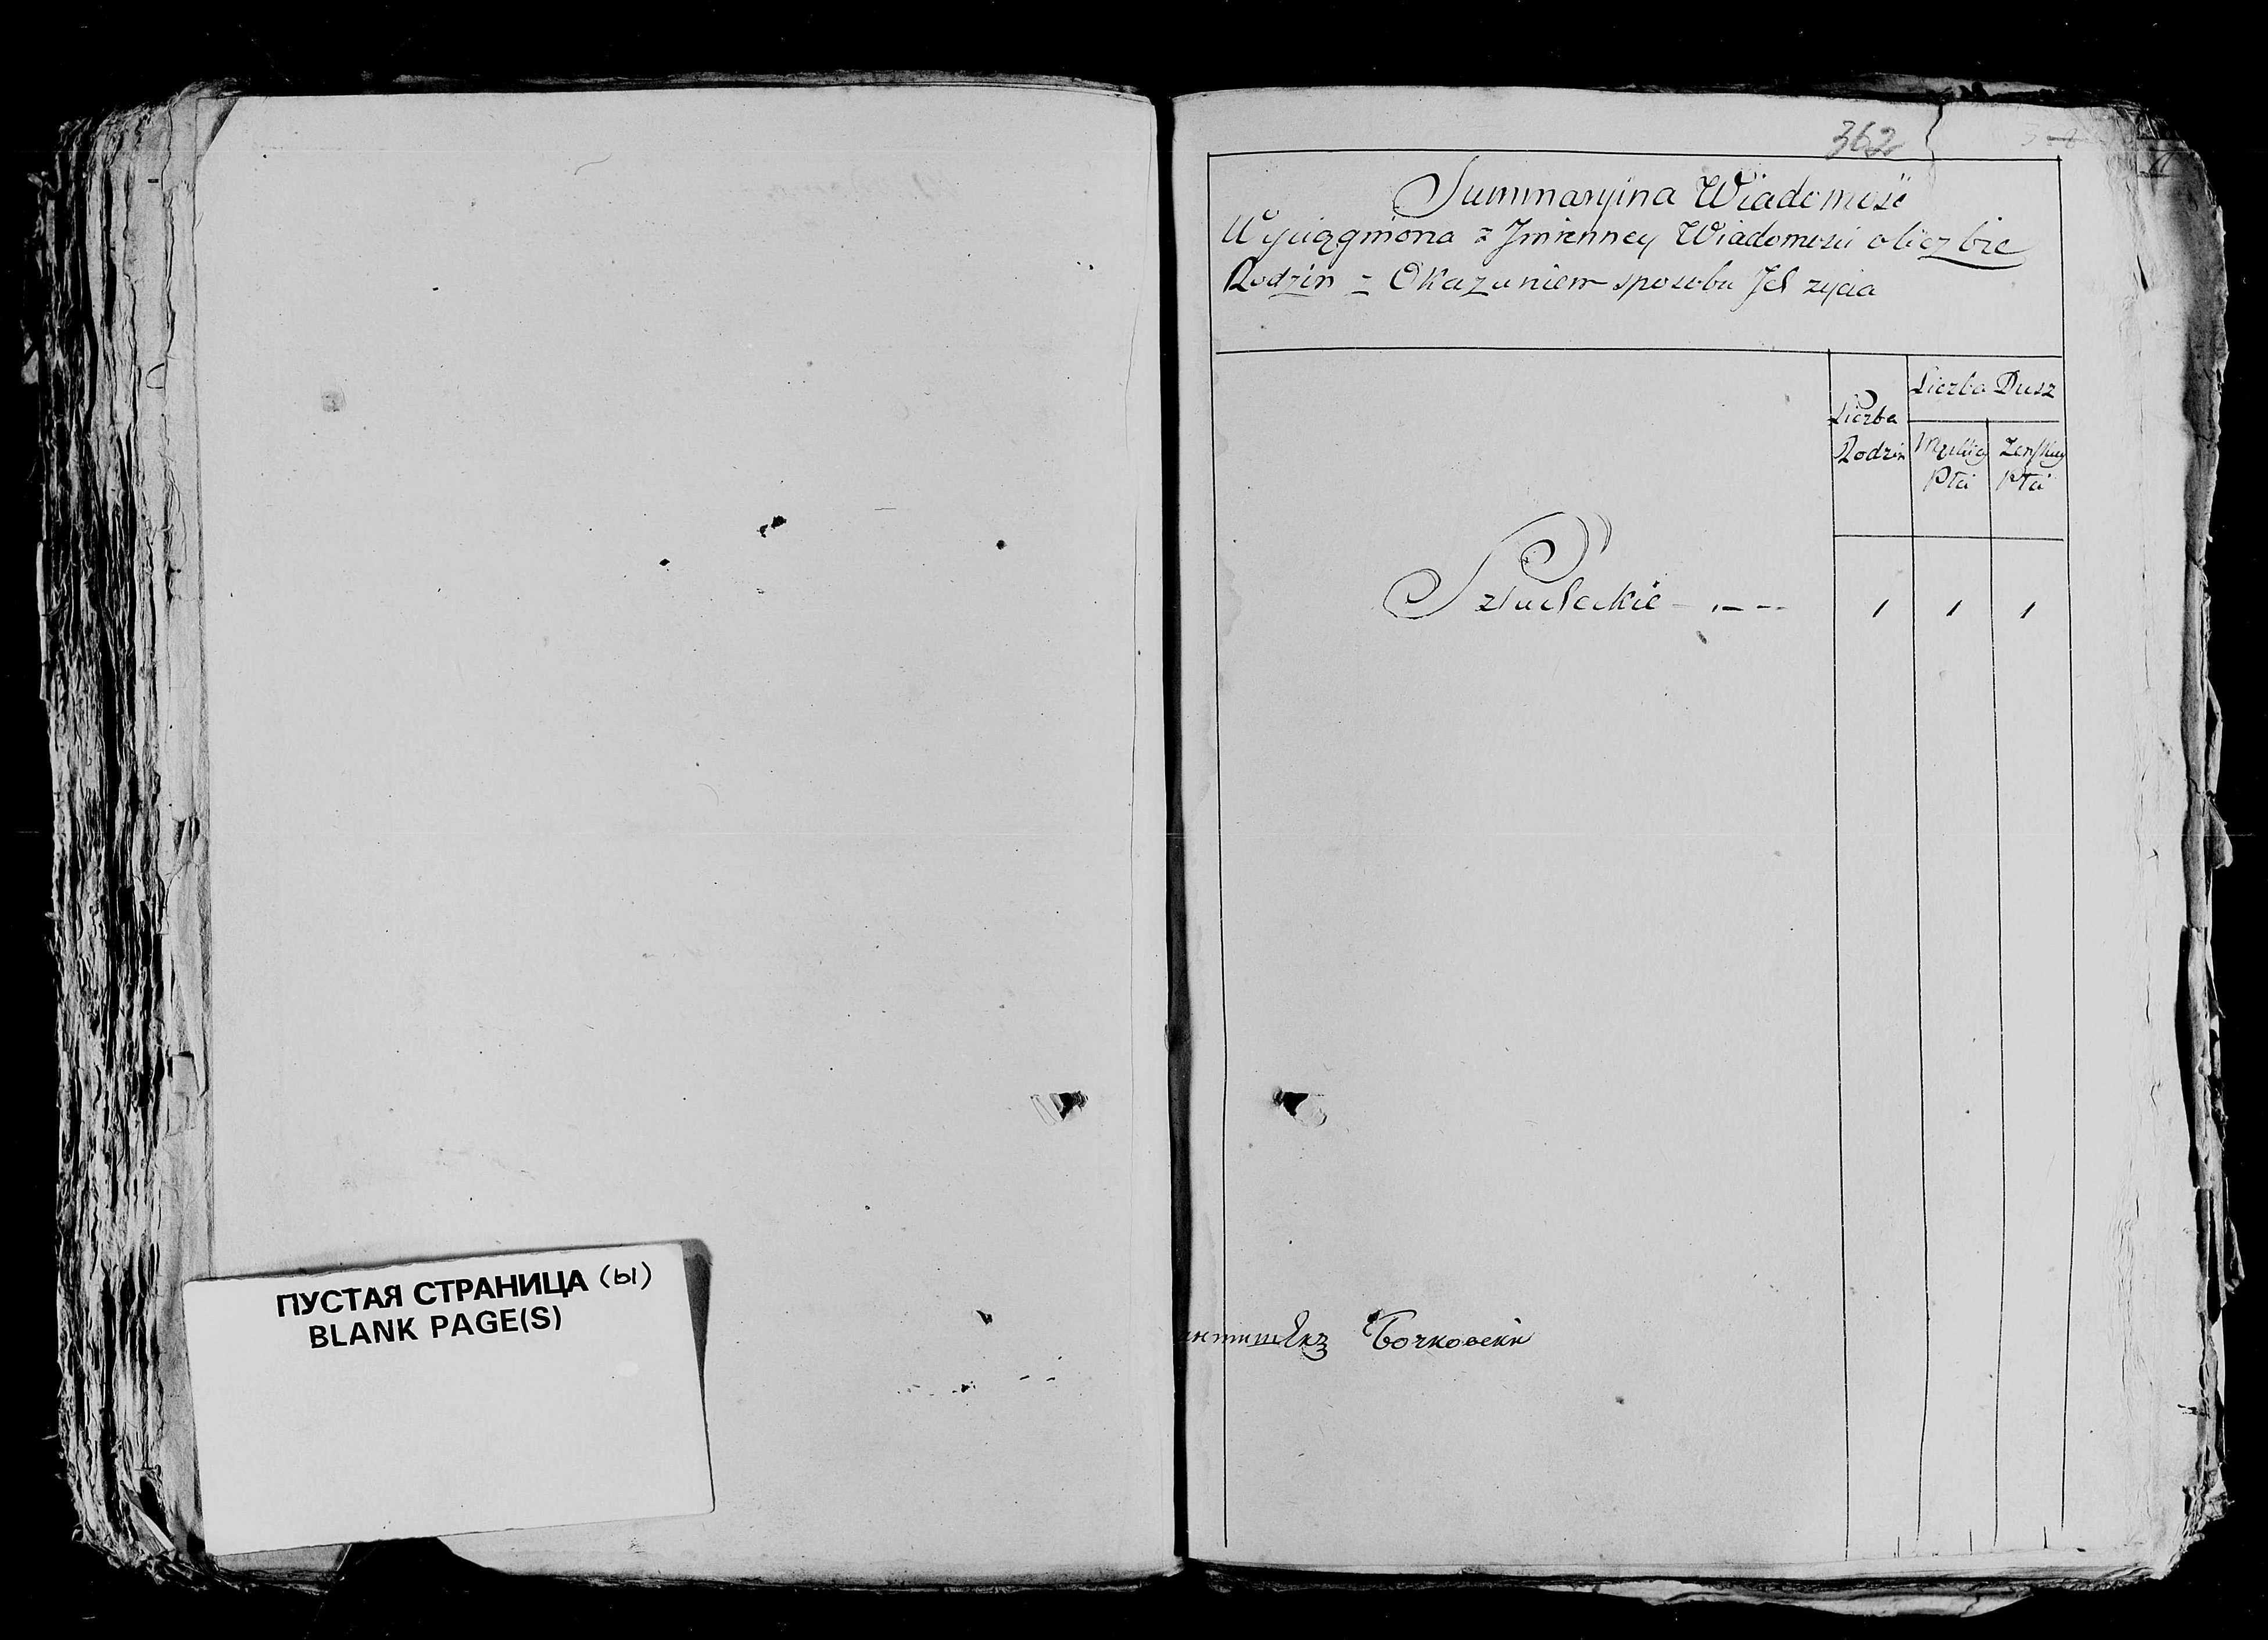 ПУСТАЯ СТРАНИЦА (ы)
BLANK PAGE(S)
362
Summaryina Wiadomość
Wyciągniona z Jmienney Wiadomości o liczbie
Rodzin z Okazaniem sposobu Jch zycia
Liczba
Rodzin
Liczba Dusz
Męskiey
Płci
Zenskiey
Płci
Szlacheckie
1 1 1
Бочковски